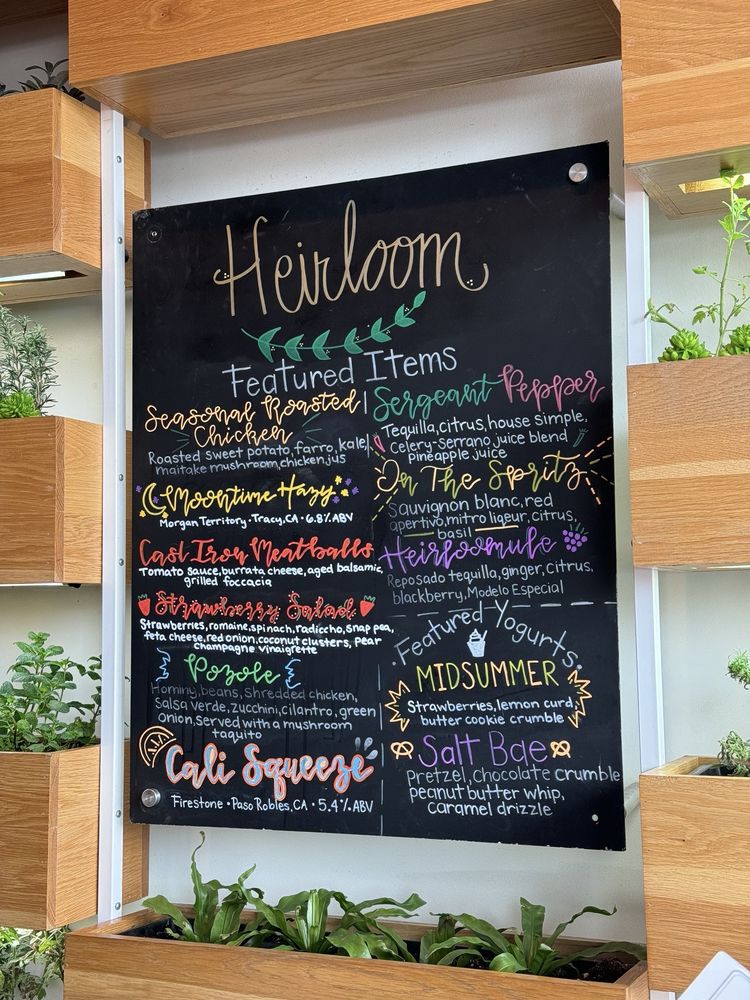 Heirloom
Featured Items
Seasonal Roasted
Chicken
Roasted sweet potato, farro, kale,
maitake mushroom, chicken jus
Moontime Hazy
Morgan Territory · Tracy, CA · 6.8% ABV
Cast Iron Meatballs
Tomato sauce, burrata cheese, aged balsamic,
grilled foccacia
Strawberry Salad
Strawberries, romaine, spinach, radiccho, snap pea,
feta cheese, red onion, coconut clusters, Pear
champagne vinaigrette
Pozole
Hominy, beans, Shredded chicken,
Salsa verde, zucchini, cilantro, green
onion, Served with a mushroom
taquito
Cali Squeeze
Firestone · Paso Robles, CA · 5.4% ABV
Sergeant Pepper
Tequila, citrus, house simple,
Celery-Serrano juice blend
Pineapple juice
On The Spritz
Sauvignon blanc, red
apertivo, mitro liqeur, citrus,
basil
Heirloomule
Reposado tequila, ginger, citrus,
blackberry, Modelo Especial
Featured Yogurts
MIDSUMMER
Strawberries, lemon curd,
butter cookie crumble
Salt Bae
Pretzel, chocolate crumble
peanut butter whip,
caramel drizzle